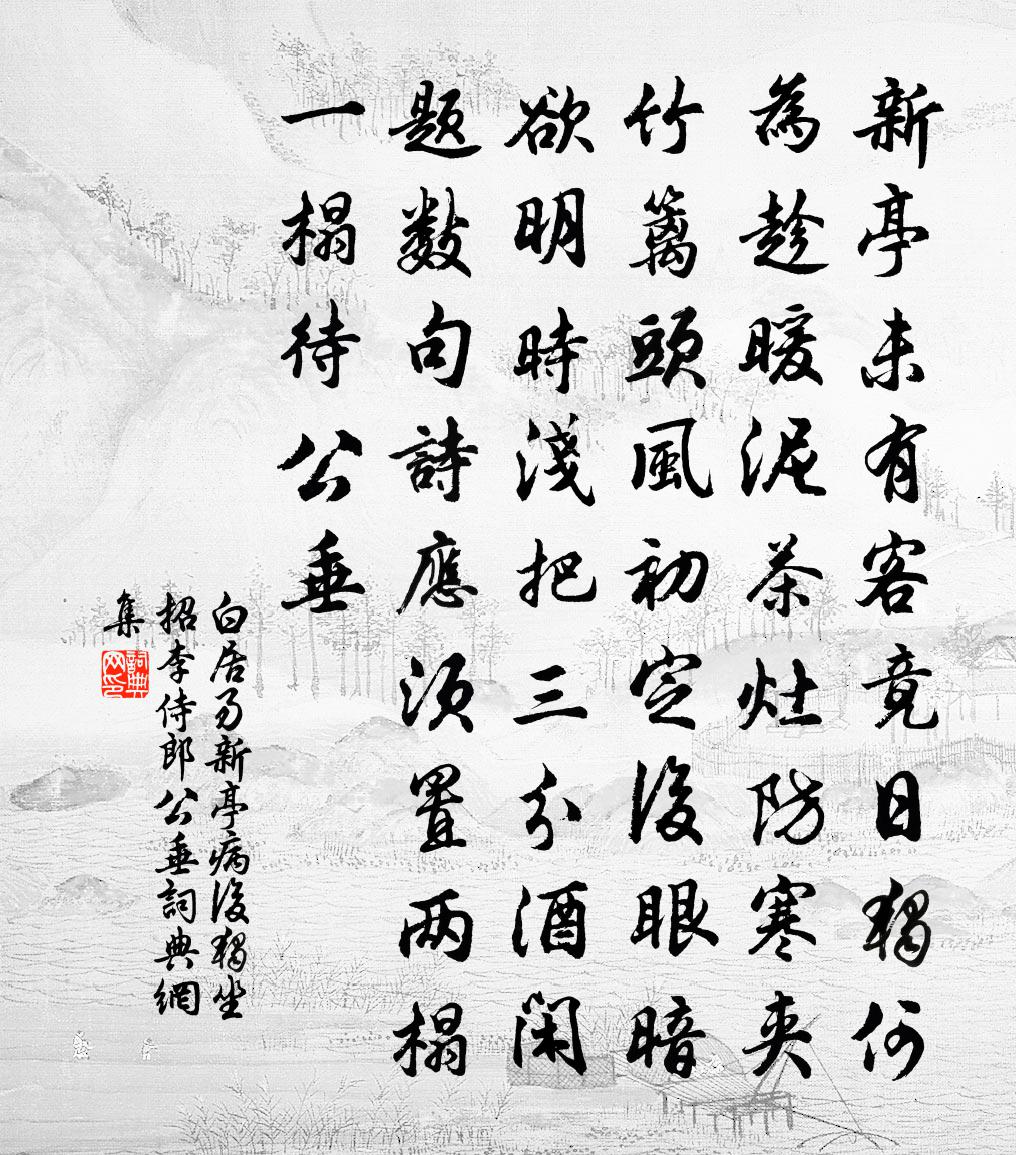 新亭未有客竟日獨何
為趁暖泥茶灶防寒夾
竹篱頭風初定後眼暗
欲明時淺把三分酒閑
题數句詩應須置两榻
一榻待公垂
白居易新亭病後獨坐
招李侍郎公垂詞典網
集
詞典
网印